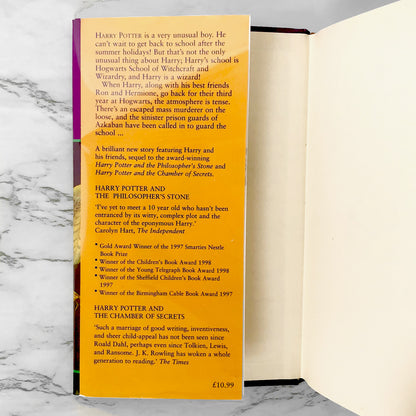 HARRY POTTER is a very unusual boy. He
can't wait to get back to school after the
summer holidays! But that's not the only
unusual thing about Harry; Harry's school is
Hogwarts School of Witchcraft and
Wizardry, and Harry is a wizard!
When Harry, along with his best friends
Ron and Hermione, go back for their third
year at Hogwarts, the atmosphere is tense.
There's an escaped mass murderer on the
loose, and the sinister prison guards of
Azkaban have been called in to guard the
school ...
A brilliant new story featuring Harry and
his friends, sequel to the award-winning
Harry Potter and the Philosopher's Stone and
Harry Potter and the Chamber of Secrets.
HARRY POTTER AND
THE PHILOSOPHER'S STONE
'I've yet to meet a 10 year old who hasn't been
entranced by its witty, complex plot and the
character of the eponymous Harry.'
Carolyn Hart, The Independent
* Gold Award Winner of the 1997 Smarties Nestle
Book Prize
* Winner of the Children's Book Award 1998
* Winner of the Young Telegraph Book Award 1998
* Winner of the Sheffield Children's Book Award
1997
* Winner of the Birmingham Cable Book Award 1997
HARRY POTTER AND
THE CHAMBER OF SECRETS
'Such a marriage of good writing, inventiveness,
and sheer child-appeal has not been seen since
Roald Dahl, perhaps even since Tolkien, Lewis,
and Ransome. J. K. Rowling has woken a whole
generation to reading.' The Times
£10.99